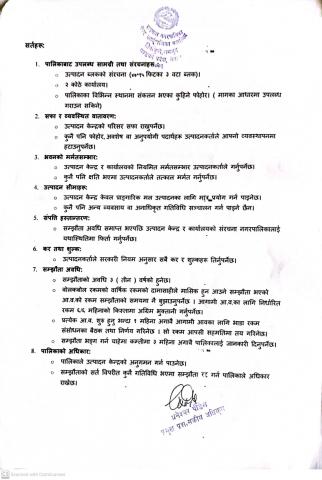 सर्तहरू:
1. पालिकाबाट उपलब्ध सामग्री तथा संरचनाहरू
○ उत्पादन ब्लकको संरचना (७०*१५ फिटका ३ वटा ब्लक)।
○ २ कोठे कार्यालय।
○ पालिकाका विभिन्न स्थानमा संकलन भएका कुहिने फोहोर। ( मागका आधारमा उपलब्ध
गराउन सकिने)
2. सफा र व्यवस्थित वातावरण:
○ उत्पादन केन्द्रको परिसर सफा राख्नुपर्नेछ।
○ कुनै पनि फोहोर,अवशेष वा अनुपयोगी पदार्थहरू उत्पादनकर्ताले आफ्नो व्यवस्थापनमा
हटाउनुपर्नेछ।
3. भवनको मर्मतसम्भार:
○ उत्पादन केन्द्र र कार्यालयको नियमित मर्मतसम्भार उत्पादनकर्ताले गर्नुपर्नेछ।
○ कुनै पनि क्षति भएमा उत्पादनकर्ताले तत्काल मर्मत गर्नुपर्नेछ।
4. उत्पादन सीमाहरू:
○ उत्पादन केन्द्र केवल प्राङ्गारिक मल उत्पादनका लागि मात्र प्रयोग गर्न पाइनेछ।
○ कुनै पनि अन्य व्यवसाय वा अनाधिकृत गतिविधि सञ्चालन गर्न पाइने छैन।
5. संपत्ति हस्तान्तरण:
○ सम्झौता अवधि समाप्त भएपछि उत्पादन केन्द्र र कार्यालयको संरचना नगरपालिकालाई
यथास्थितिमा फिर्ता गर्नुपर्नेछ।
6. कर तथा शुल्क:
○ उत्पादनकर्ताले सरकारी नियम अनुसार सबै कर र शुल्कहरू तिर्नुपर्नेछ।
7. सम्झौता अवधि:
○ सम्झौताको अवधि ३ ( तीन ) वर्षको हुनेछ।
○ बोलकबोल रकमको वार्षिक रकमको दामासाहीले मासिक हुन आउने सम्झौता भएको
आ.व.को रकम सम्झौताको समयमा नै बुझाउनुपर्नेछ । आगामी आ.व.का लागि निर्धारित
रकम ६/६ महिनाको किस्तामा अग्रिम भुक्तानी गर्नुपर्नेछ।
○ प्रत्येक आ.व. शुरु हुनु भन्दा १ महिना अगावै आगामी आवका लागि भाडा रकम
संसोधनका बैठक तथा निर्णय गरिनेछ । सो रकम आपसी सहमतिमा तय गरिनेछ।
○ सम्झौता भङ्ग गर्न चाहेमा कम्तीमा ३ महिना अगावै पालिकालाई जानकारी दिनुपर्नेछ।
8. पालिकाको अधिकार:
○ पालिकाले उत्पादन केन्द्रको अनुगमन गर्न पाउनेछ।
○ सम्झौताको सर्त विपरीत कुनै गतिविधि भएमा सम्झौता रद्द गर्न पालिकाले अधिकार
राख्नेछ।
प्रमुख प्रशासकीय अधिकृत
Scanned with CamScanner